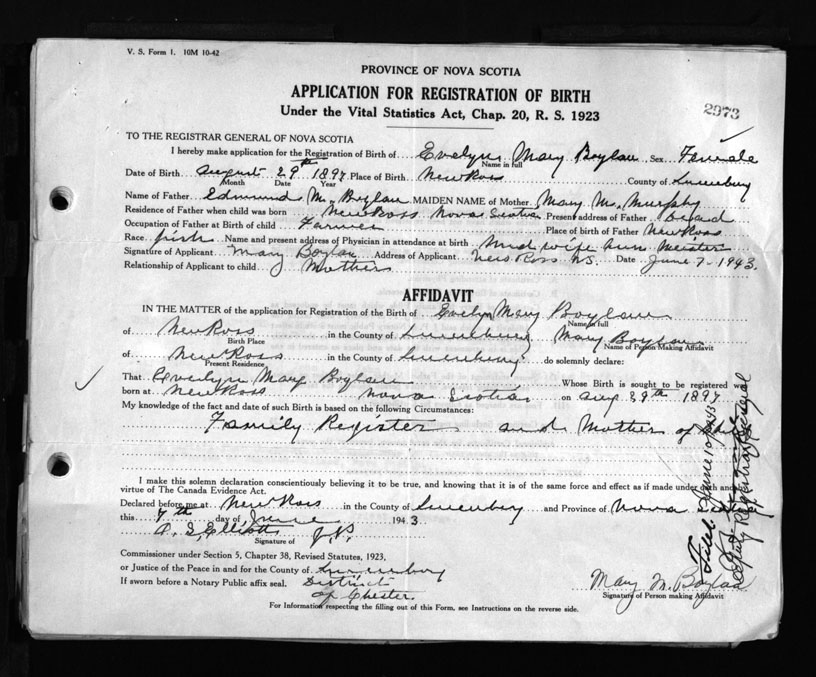 V. S. Form 1. 10M 10-42
PROVINCE OF NOVA SCOTIA
APPLICATION FOR REGISTRATION OF BIRTH
Under the Vital Statistics Act, Chap. 20, R. S. 1923
2973
TO THE REGISTRAR GENERAL OF NOVA SCOTIA
I hereby make application for the Registration of Birth of Evelyn Mary Boylan Sex Female
Name in full
Date of Birth August 29th 1897 Place of Birth New Ross County of Lunenburg
Month Date Year
Name of Father Edmund M. Boylan MAIDEN NAME of Mother Mary M. Murphy
Residence of Father when child was born New Ross Nova Scotia Present address of Father Dead
Occupation of Father at Birth of child Farmer Place of birth of Father New Ross
Race Irish Name and present address of Physician in attendance at birth Mid wife Ann Meister
Signature of Applicant Mary Boylan Address of Applicant New Ross N.S. Date June 7 - 1943.
Relationship of Applicant to child Mother
AFFIDAVIT
IN THE MATTER of the application for Registration of the Birth of Evelyn Mary Boylan
Name in full
of New Ross in the County of Lunenburg Mary Boylan
Birth Place Name of Person Making Affidavit
of New Ross in the County of Lunenburg do solemnly declare:
Present Residence
That Evelyn Mary Boylan Whose Birth is sought to be registered was
born at New Ross Nova Scotia on Aug 29th 1897
My knowledge of the fact and date of such Birth is based on the following Circumstances:
Family Register and Mother of
I make this solemn declaration conscientiously believing it to be true, and knowing that it is of the same force and effect as if made under oath and by
virtue of The Canada Evidence Act.
Declared before me at New Ross in the County of Lunenburg and Province of Nova Scotia
this 7th day of June 1943
A. S. Elliott J.P.
Signature of
Commissioner under Section 5, Chapter 38, Revised Statutes, 1923,
or Justice of the Peace in and for the County of Lunenburg
If sworn before a Notary Public affix seal. District
of Chester.
Mary M. Boylan
Signature of Person making Affidavit
For Information respecting the filling out of this Form, see Instructions on the reverse side.
Filed June 10 1943
Deputy Registrar General